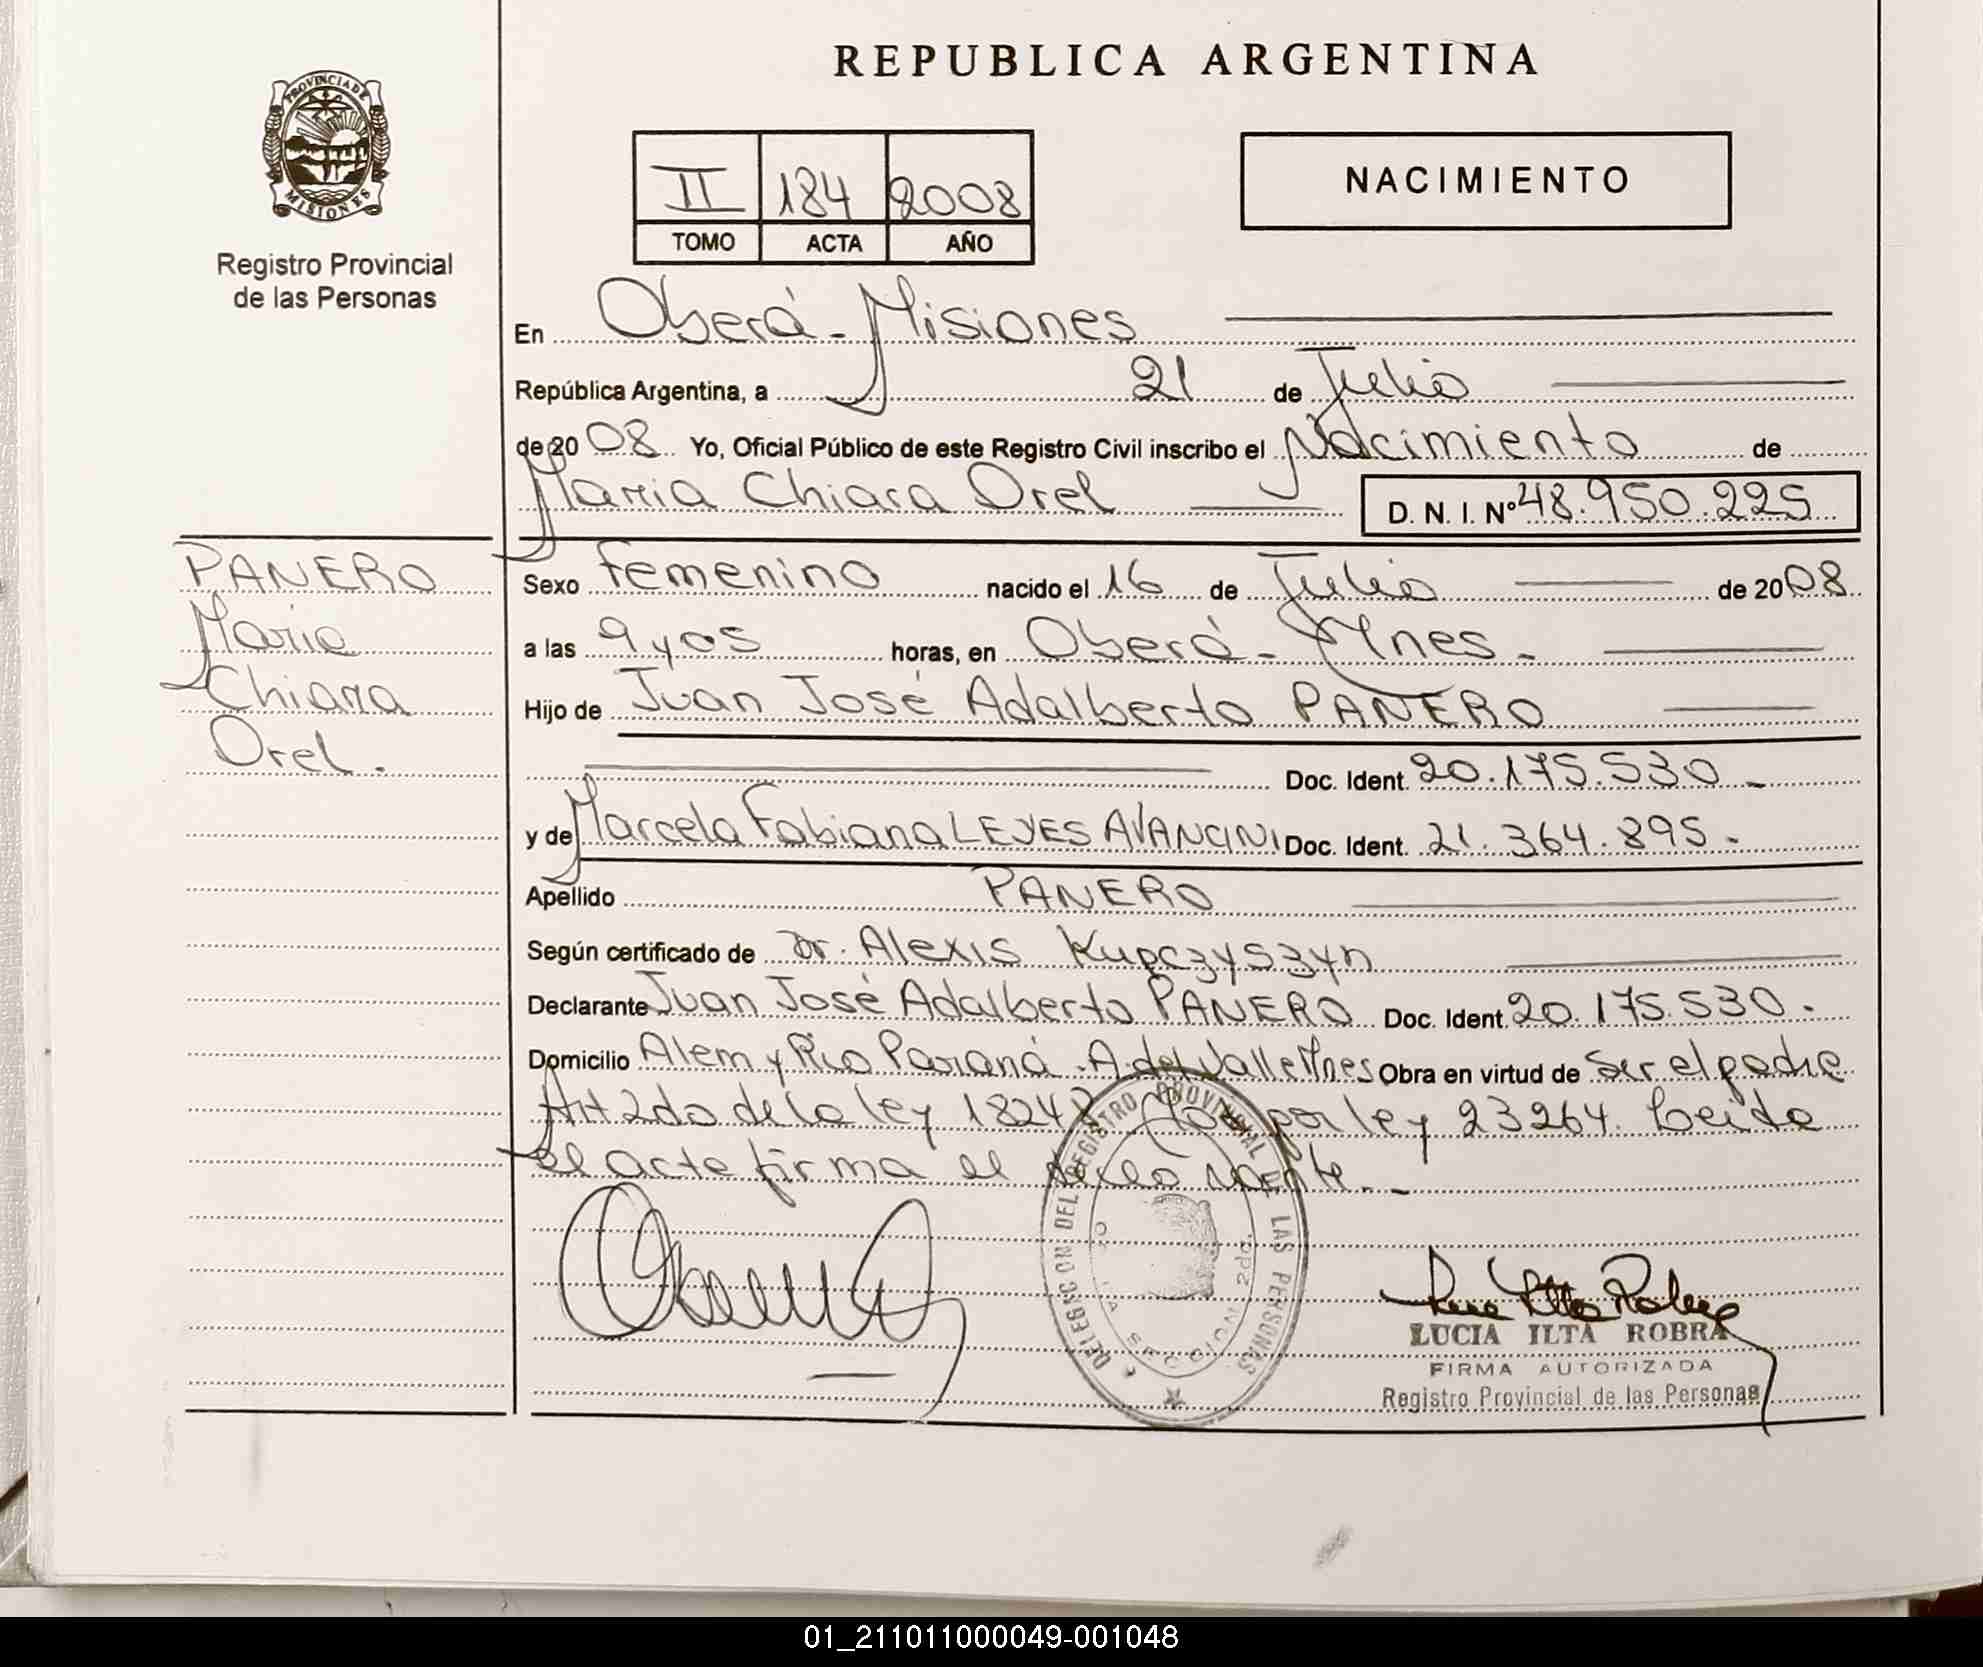 REPUBLICA ARGENTINA
PROVINCIA DE MISIONES
Registro Provincial
de las Personas
II 184 2008
TOMO ACTA AÑO
NACIMIENTO
En Oberá - Misiones
República Argentina, a 21 de Julio
de 2008 Yo, Oficial Público de este Registro Civil inscribo el Nacimiento de
Maria Chiara Orel D. N. I. Nº 48.950.225
PANERO
Maria
Chiara
Orel.
Sexo femenino nacido el 16 de Julio de 2008
a las 9 y 05 horas, en Oberá - Mnes -
Hijo de Juan José Adalberto PANERO
Doc. Ident. 20.175.530 -
y de Marcela Fabiana LEYES AVANCINI Doc. Ident. 21.364.895 -
Apellido PANERO
Según certificado de Dr. Alexis Kupczyszyn
Declarante Juan José Adalberto PANERO Doc. Ident. 20.175.530 -
Domicilio Alem y Rio Paraná - A del Valle Mnes Obra en virtud de Ser el padre
Art 2do de la ley 18248 por ley 23264. Leida
el acta firma el
DELEGACION DEL REGISTRO PROVINCIAL DE LAS PERSONAS
SECCION 2da.
LUCIA ILTA ROBRA
FIRMA AUTORIZADA
Registro Provincial de las Personas
01_211011000049-001048